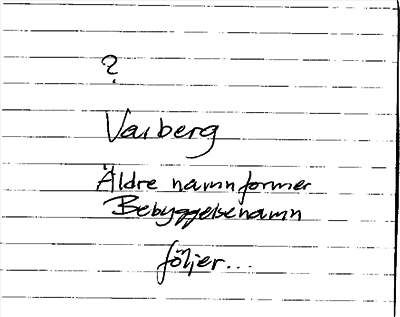 ?
Varberg
Äldre namnformer
Bebyggelsenamn
följer...